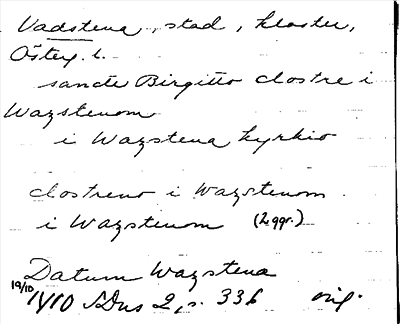 Vadstena, stad, kloster,
Östg. l.
sancte Birgitto clostre i
Wazstenom
i Wazstena kyrkio
clostreno i Wazstenom
i Wazstenom (2 ggr.)
Datum Wazstena
19/10 1410 SDns 2, s. 336 orig.